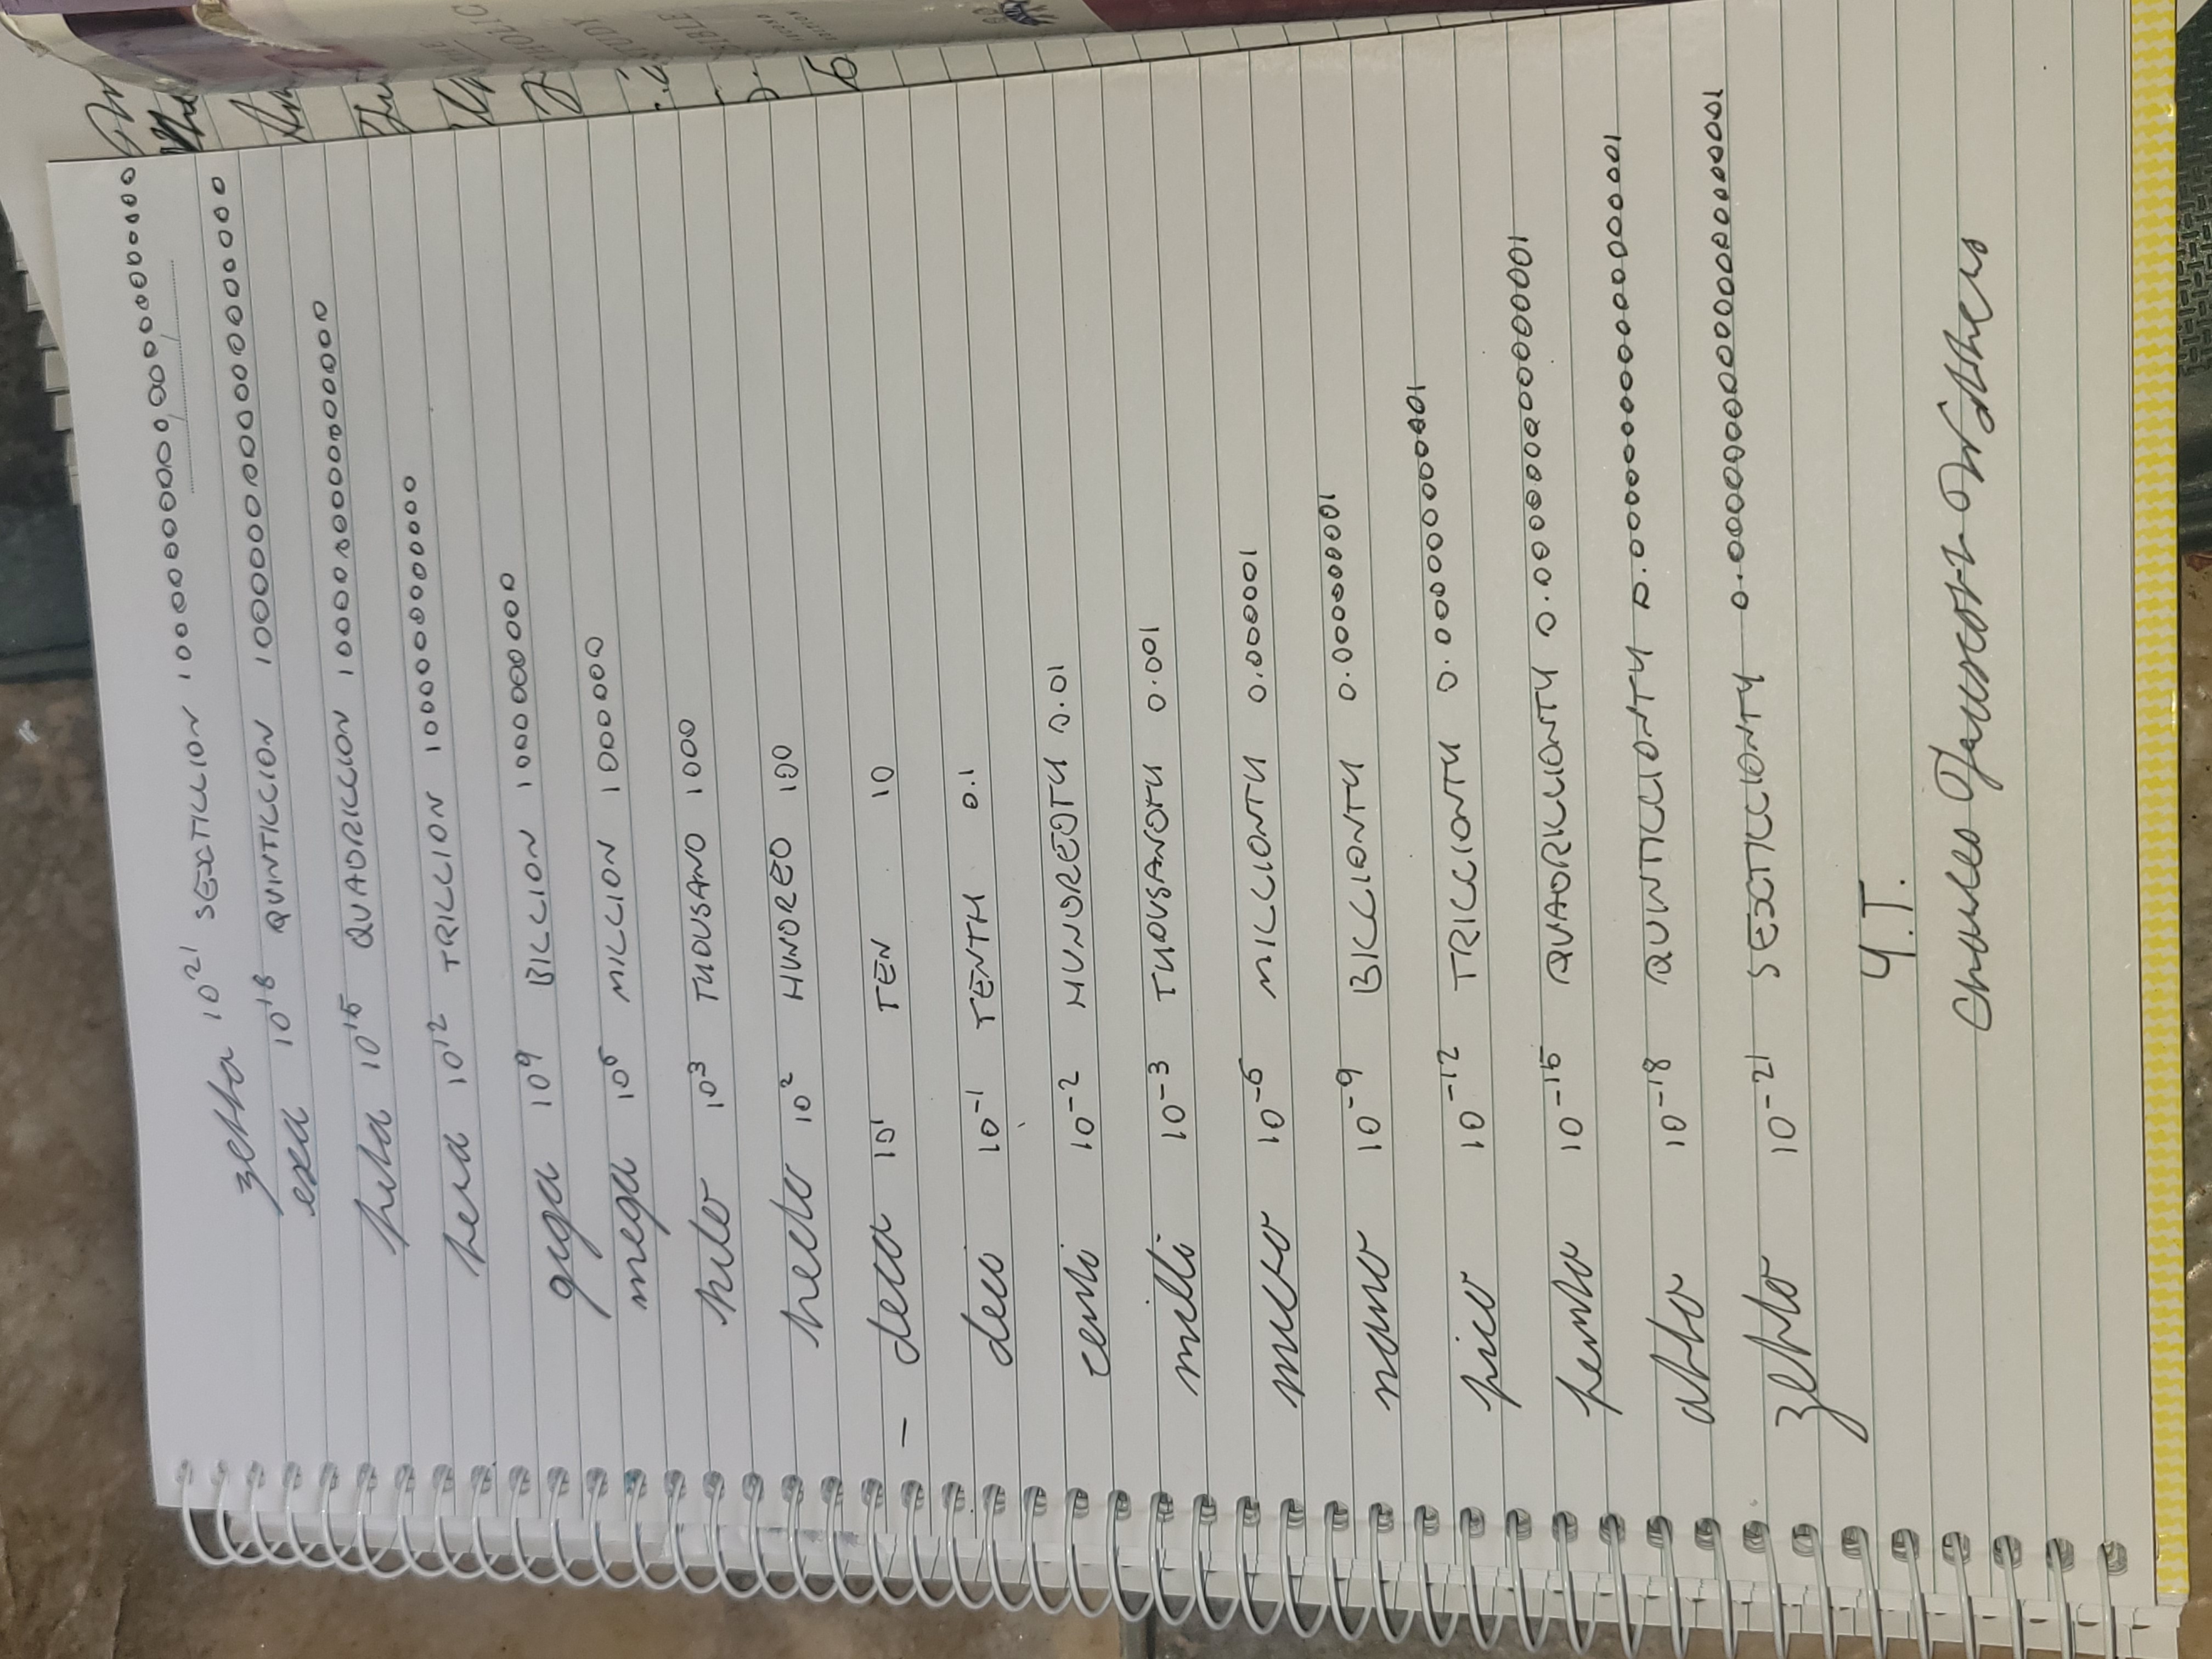 zetta 10²¹ SEXTILLION 1000000000000000000000
exa 10¹⁸ QUINTILLION 1000000000000000000
peta 10¹⁵ QUADRILLION 1000000000000000
tera 10¹² TRILLION 1000000000000
giga 10⁹ BILLION 1000000000
mega 10⁶ MILLION 1000000
kilo 10³ THOUSAND 1000
hecto 10² HUNDRED 100
- deca 10¹ TEN 10
deci 10⁻¹ TENTH 0.1
centi 10⁻² HUNDREDTH 0.01
milli 10⁻³ THOUSANDTH 0.001
micro 10⁻⁶ MILLIONTH 0.000001
nano 10⁻⁹ BILLIONTH 0.000000001
pico 10⁻¹² TRILLIONTH 0.000000000001
femto 10⁻¹⁵ QUADRILLIONTH 0.000000000000001
atto 10⁻¹⁸ QUINTILLIONTH 0.000000000000000001
zepto 10⁻²¹ SEXTILLIONTH 0.000000000000000000001
Y.T.
Charles Withers
STUDY
BIBLE
SECOND
EDITION